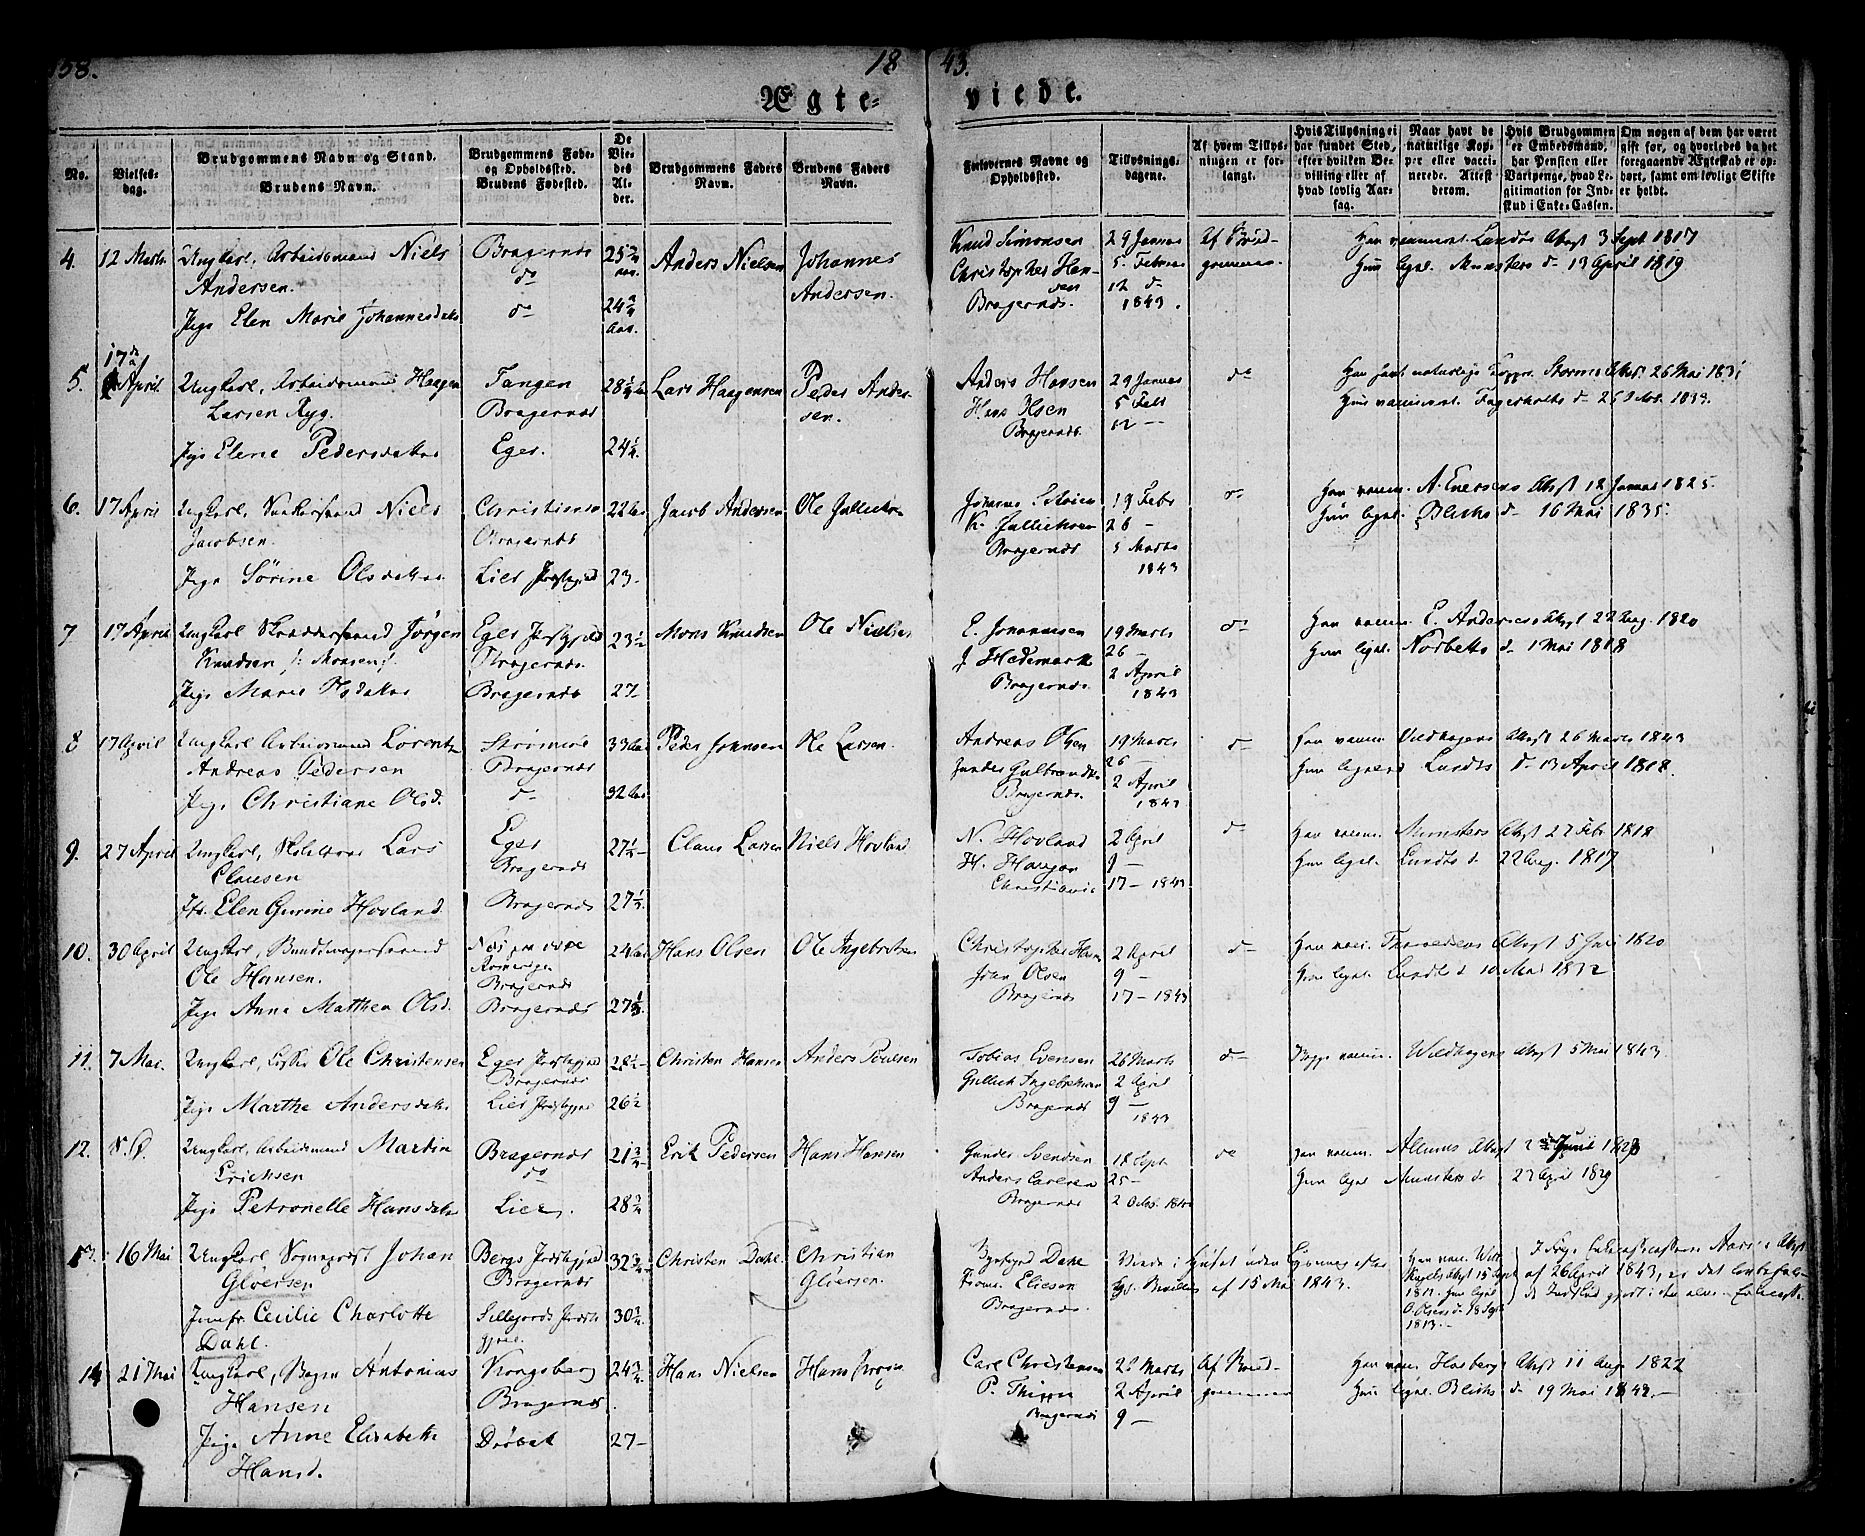 158.
18
43.
Ægte=
viede.
No.
Vielses-
dag.
Brudgommens Navn og Stand.
Brudens Navn.
Brudgommens Føde-
og Opholdssted.
Brudens Fødested.
De
Vie-
des
Al-
der.
Brudgommens Faders
Navn.
Brudens Faders
Navn.
Forlovernes Navne og
Opholdssted.
Tillysnings-
dagene.
Af hvem Tillys-
ningen er for-
langt.
Hvis Tillysning ei
har fundet Sted,
efter hvilken Be-
villing eller af
hvad lovlig Aar-
sag.
Naar havt de
naturlige Kop-
per eller vacci-
nerede. Attest
derom.
Hvis Brudgommen
er Embedsmand,
har Pension eller
Vartpenge, hvad Le-
gitimation for Ind-
skud i Enke-Cassen.
Om nogen af dem har været
gift før, og hvorledes da det
foregaaende Ægteskab er op-
hørt, samt om lovligt Skifte
er holdt.
4.
12 Marts
Ungkarl, Arbeidsmand Niels
Andersen.
Pige Elen Marie Johannesdatter
Bragernæs
do
do
25 3/4
24 3/4
Anders Nielsen
Johannes
Andersen.
Knud Simonsen
Christopher Han-
sen
Bragernæs.
29 Januar
5. Februar
12 do
1843.
Af Brud-
gommen.
Han vaccineret Lundts Attest 3 Sept 1817
Hun ligel. Munsters do 13 April 1819
5.
17de
April
Ungkarl, Arbeidsmand Haagen
Larsen Ryg.
Pige Elene Pedersdatter
Tangen
Bragernæs
Eger.
28 1/4
24 1/4.
Lars Haagensen
Peder Ander-
sen.
Anders Hansen
Hans Olsen
Bragernæs.
29 Januar
5 Febr
12 —
do
Han havt naturlige Kopper. Storms Attest. 26 Mai 1831
Hun vaccineret. Fagerholts do
6.
17 April
Ungkarl, Niels
Jacobsen.
Pige Sørine Olsdatter
Christiania
Bragernæs
Lier Præstegjeld
22
23.
Jacob Andersen
Ole Gulliksen
Gulliksen
Bragernæs
19 Febr
26 —
5 Marts
1843
do
Han vaccin. A. Enersens Attest 12 Januar 1825
Hun ligel. Blichs do 16 Mai 1835
7
17 April
Ungkarl Skræddersvend Jørgen
Knudsen
Pige Marie Olsdatter
Eger Præstegjeld
Bragernæs.
Bragernæs
23 1/2
27
Mons Knudsen
Ole Nielsen
E. Johannesen
J Hedemark
Bragernæs.
19 Marts
26 —
2 April
1843
do
Han vaccin. E. Andersens Attest 22 Aug. 1820
Hun ligel. Norbeths do 1 Mai 1818
8
17 April
Ungkarl Arbeidsmand Lorentz
Andreas Pedersen
Pige Christiane Olsd.
Strømsøe
Bragernæs
do
33
32
Peder Johnsen
Ole Larsen.
Andreas Olsen
Gunder Gulbrandsen
Bragernæs.
19 Marts
26 —
2 April
1843
do
Han vaccin. Vildhagens Attest 26 Marts 1843
Hun ligel. Lundts do 13 April 1818.
9.
27 April
Ungkarl, Lars
Clausen
Jfr. Elen Gurine Hovland.
Eger
Bragernæs
Bragernæs
27 1/4
27 1/4.
Claus Larsen
Niels Hovland
N. Hovland
Christiania
2 April
9 —
17 — 1843
do
Han vaccin. Munsters Attest 27 Febr 1818
Hun ligel. Lundts do 22 Aug. 1817
10.
30 April
Ungkarl, Bundtmagersvend
Ole Hansen.
Pige Anne Mathea Olsd.
Romerige
Bragernæs
Bragernæs
24
27 1/2
Hans Olsen
Ole Ingebretsen
Christopher Hansen
Olsen
Bragernæs
2 April
9 —
17 — 1843
do
Han vacc. Attest 5 Juli 1820
Hun ligel. Lundts do 10 Mai 1832
11.
7 Mai.
Ungkarl, Ole Christensen
Pige Marthe Andersdatter
Eger Præstegjeld
Bragernæs
Lier Præstegjeld
28 1/2
26 1/2
Christen Hansen
Anders Poulsen
Tobias Evensen
Gullich Ingebretsen
Bragernæs
26 Marts
2 April
9 —
1843
do
Begge vaccin. Vildhagens Attest 5 Mai 1843
12.
Ungkarl, Arbeidsmand Martin
Erichsen
Pige Petronelle Hansdatter
Bragernæs
do
Lier.
21 3/4
28 3/4
Erik Pedersen
Hans Hansen
Gunder Svendsen
Anders Carlsen
Bragernæs
18 Sept
25 —
2 Octbr.
do
Han vaccin. Attest
Hun ligel. Munsters do 23 April 1829
13.
16 Mai
Ungkarl, Sognepræst Johan
Gløersen
Jomfr Cecilie Charlotte
Dahl.
Bergs Præstegjeld
Bragernæs
Sillejords Præste-
gjeld.
32 3/4
30 3/4
Christen Dahl
Christian
Gløersen.
Dahl
Eliesen
Bragernæs.
Viede i Huset uden Lysning efter
Kgl. Bevilling af 15 Mai 1843.
Han vacc.
Attest 15 Sept
1811. Hun ligel
Olsens do 18 Sept
1813.
Attest
af 26 April 1843, er det lovbefale-
de Indskud gjort i den alm. Enkecasse.
14
21 Mai
Ungkarl, Antonius
Hansen
Pige Anne Elisabeth
Hansd.
Kongsberg
Bragernæs
Drøbak
24 3/4
27 —
Hans Nielsen
Hans
Carl Christensen
P.
Bragernæs
28 Marts
2 April
9 —
Af Brud-
gommen
Han vacc. Hasberg Attest 11 Aug 1822
Hun ligel. Blichs do 19 Mai 1842.